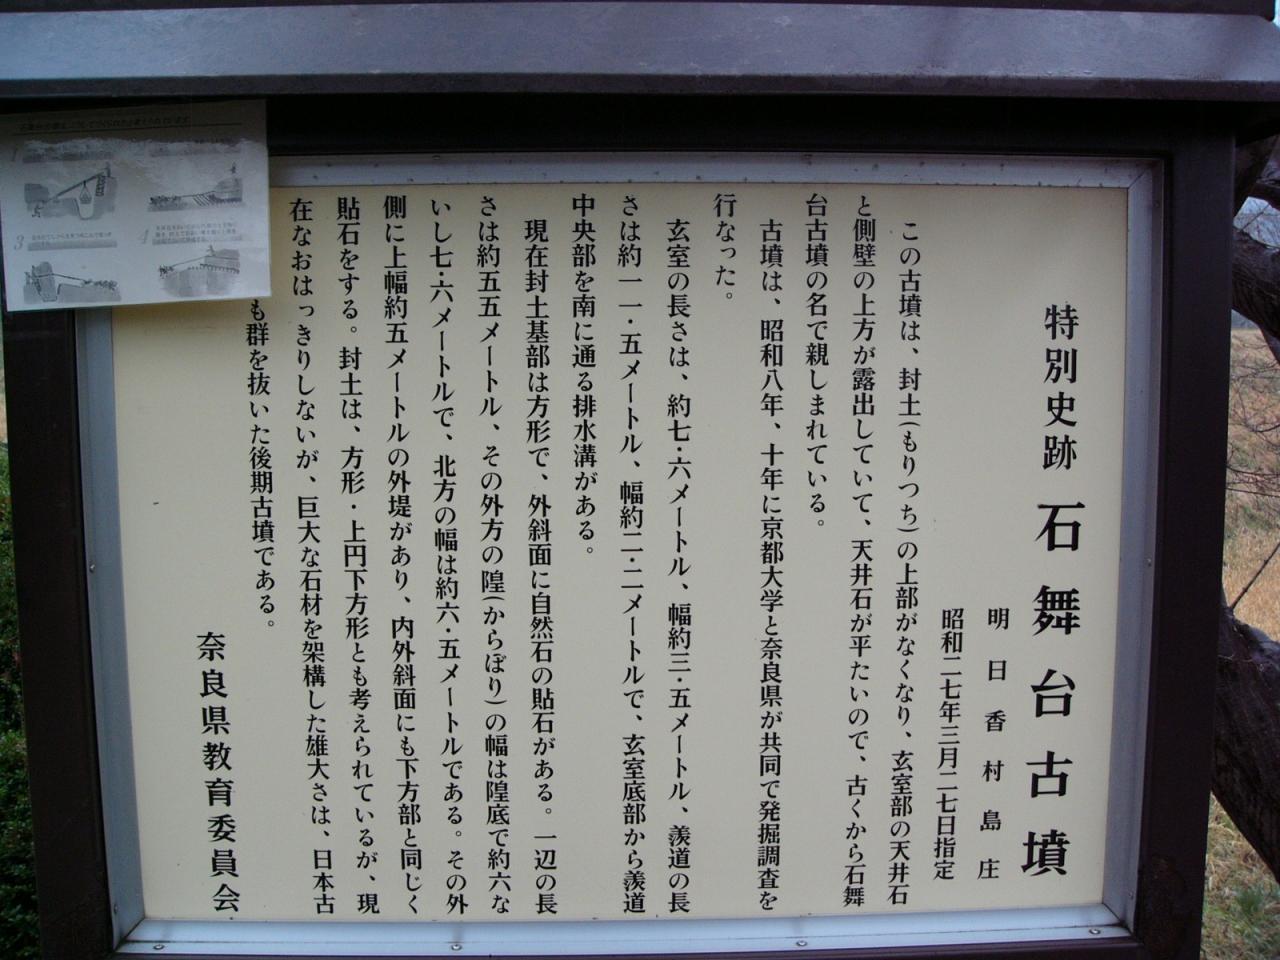 特別史跡 石舞台古墳
明日香村島庄
昭和二七年三月二七日指定
この古墳は、封土(もりつち)の上部がなくなり、玄室部の天井石
と側壁の上方が露出していて、天井石が平たいので、古くから石舞
台古墳の名で親しまれている。
古墳は、昭和八年、十年に京都大学と奈良県が共同で発掘調査を
行なった。
玄室の長さは、約七・六メートル、幅約三・五メートル、羨道の長
さは約一一・五メートル、幅約二・二メートルで、玄室底部から羨道
中央部を南に通る排水溝がある。
現在封土基部は方形で、外斜面に自然石の貼石がある。一辺の長
さは約五五メートル、その外方の隍(からぼり)の幅は隍底で約六な
いし七・六メートルで、北方の幅は約六・五メートルである。その外
側に上幅約五メートルの外堤があり、内外斜面にも下方部と同じく
貼石をする。封土は、方形・上円下方形とも考えられているが、現
在なおはっきりしないが、巨大な石材を架構した雄大さは、日本古
も群を抜いた後期古墳である。
奈良県教育委員会
3
4